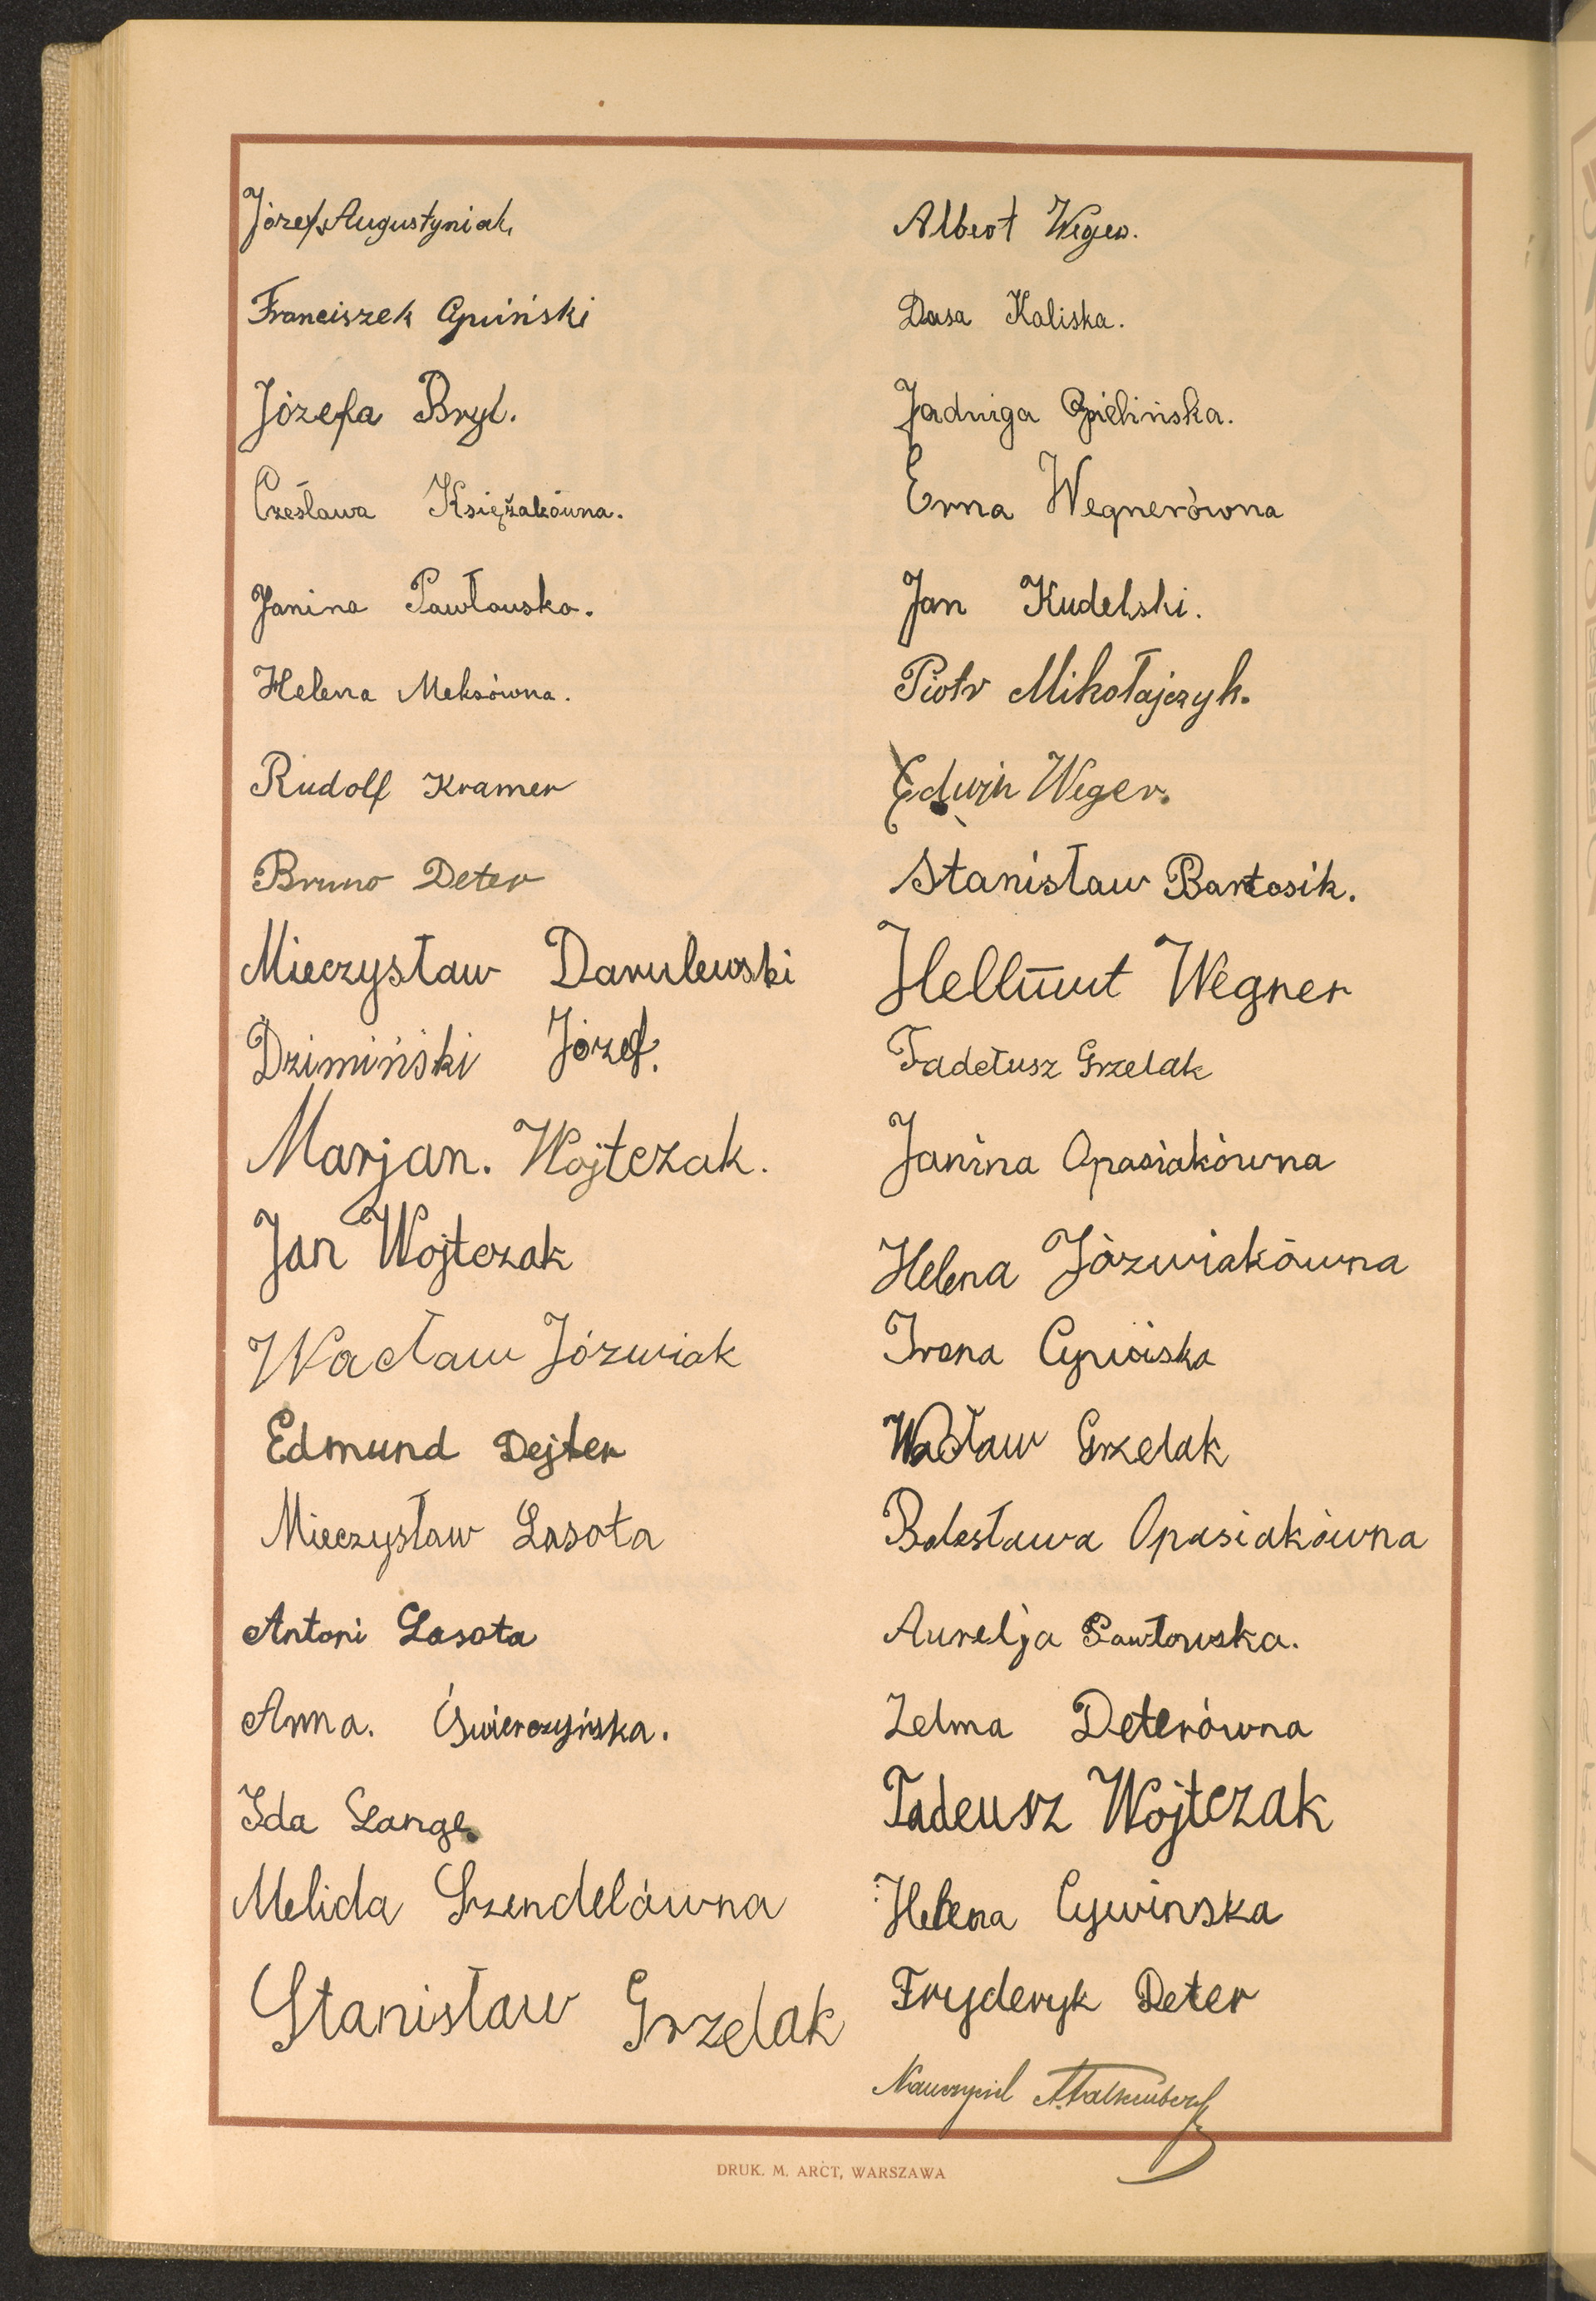 Józef Augustyniak
Franciszek
Józefa Bryl.
Czesława Księżakówna.
Janina Pawłowska.
Helena Meksówna.
Rudolf Kramer
Bruno Deter
Mieczysław Danulewski
Dzimiński Józef.
Marjan. Wojtczak.
Jan Wojtczak
Wacław Józwiak
Edmund Dejter
Mieczysław Lasota
Antoni Lasota
Anna. Świerczyńska.
Ida Lange
Melida Szendelówna
Stanisław Grzelak
Albert Weger.
Dasa Kaliska.
Jadwiga
Erna Wegnerówna
Jan Kudelski.
Piotr Mikołajczyk.
Edwin Weger.
Stanisław Bartosik.
Hellmut Wegner
Tadeusz Grzelak
Janina Opasiakówna
Helena Józwiakówna
Irena
Wacław Grzelak
Bolesława Opasiakówna
Aurelja Pawłowska.
Zelma Deterówna
Tadeusz Wojtczak
Helena Cywinska
Fryderyk Deter
Nauczyciel
DRUK. M. ARCT, WARSZAWA